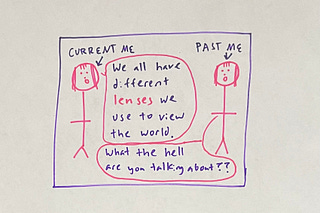 CURRENT ME
PAST ME
We all have
different
lenses we
use to view
the world.
What the hell
are you talking about??